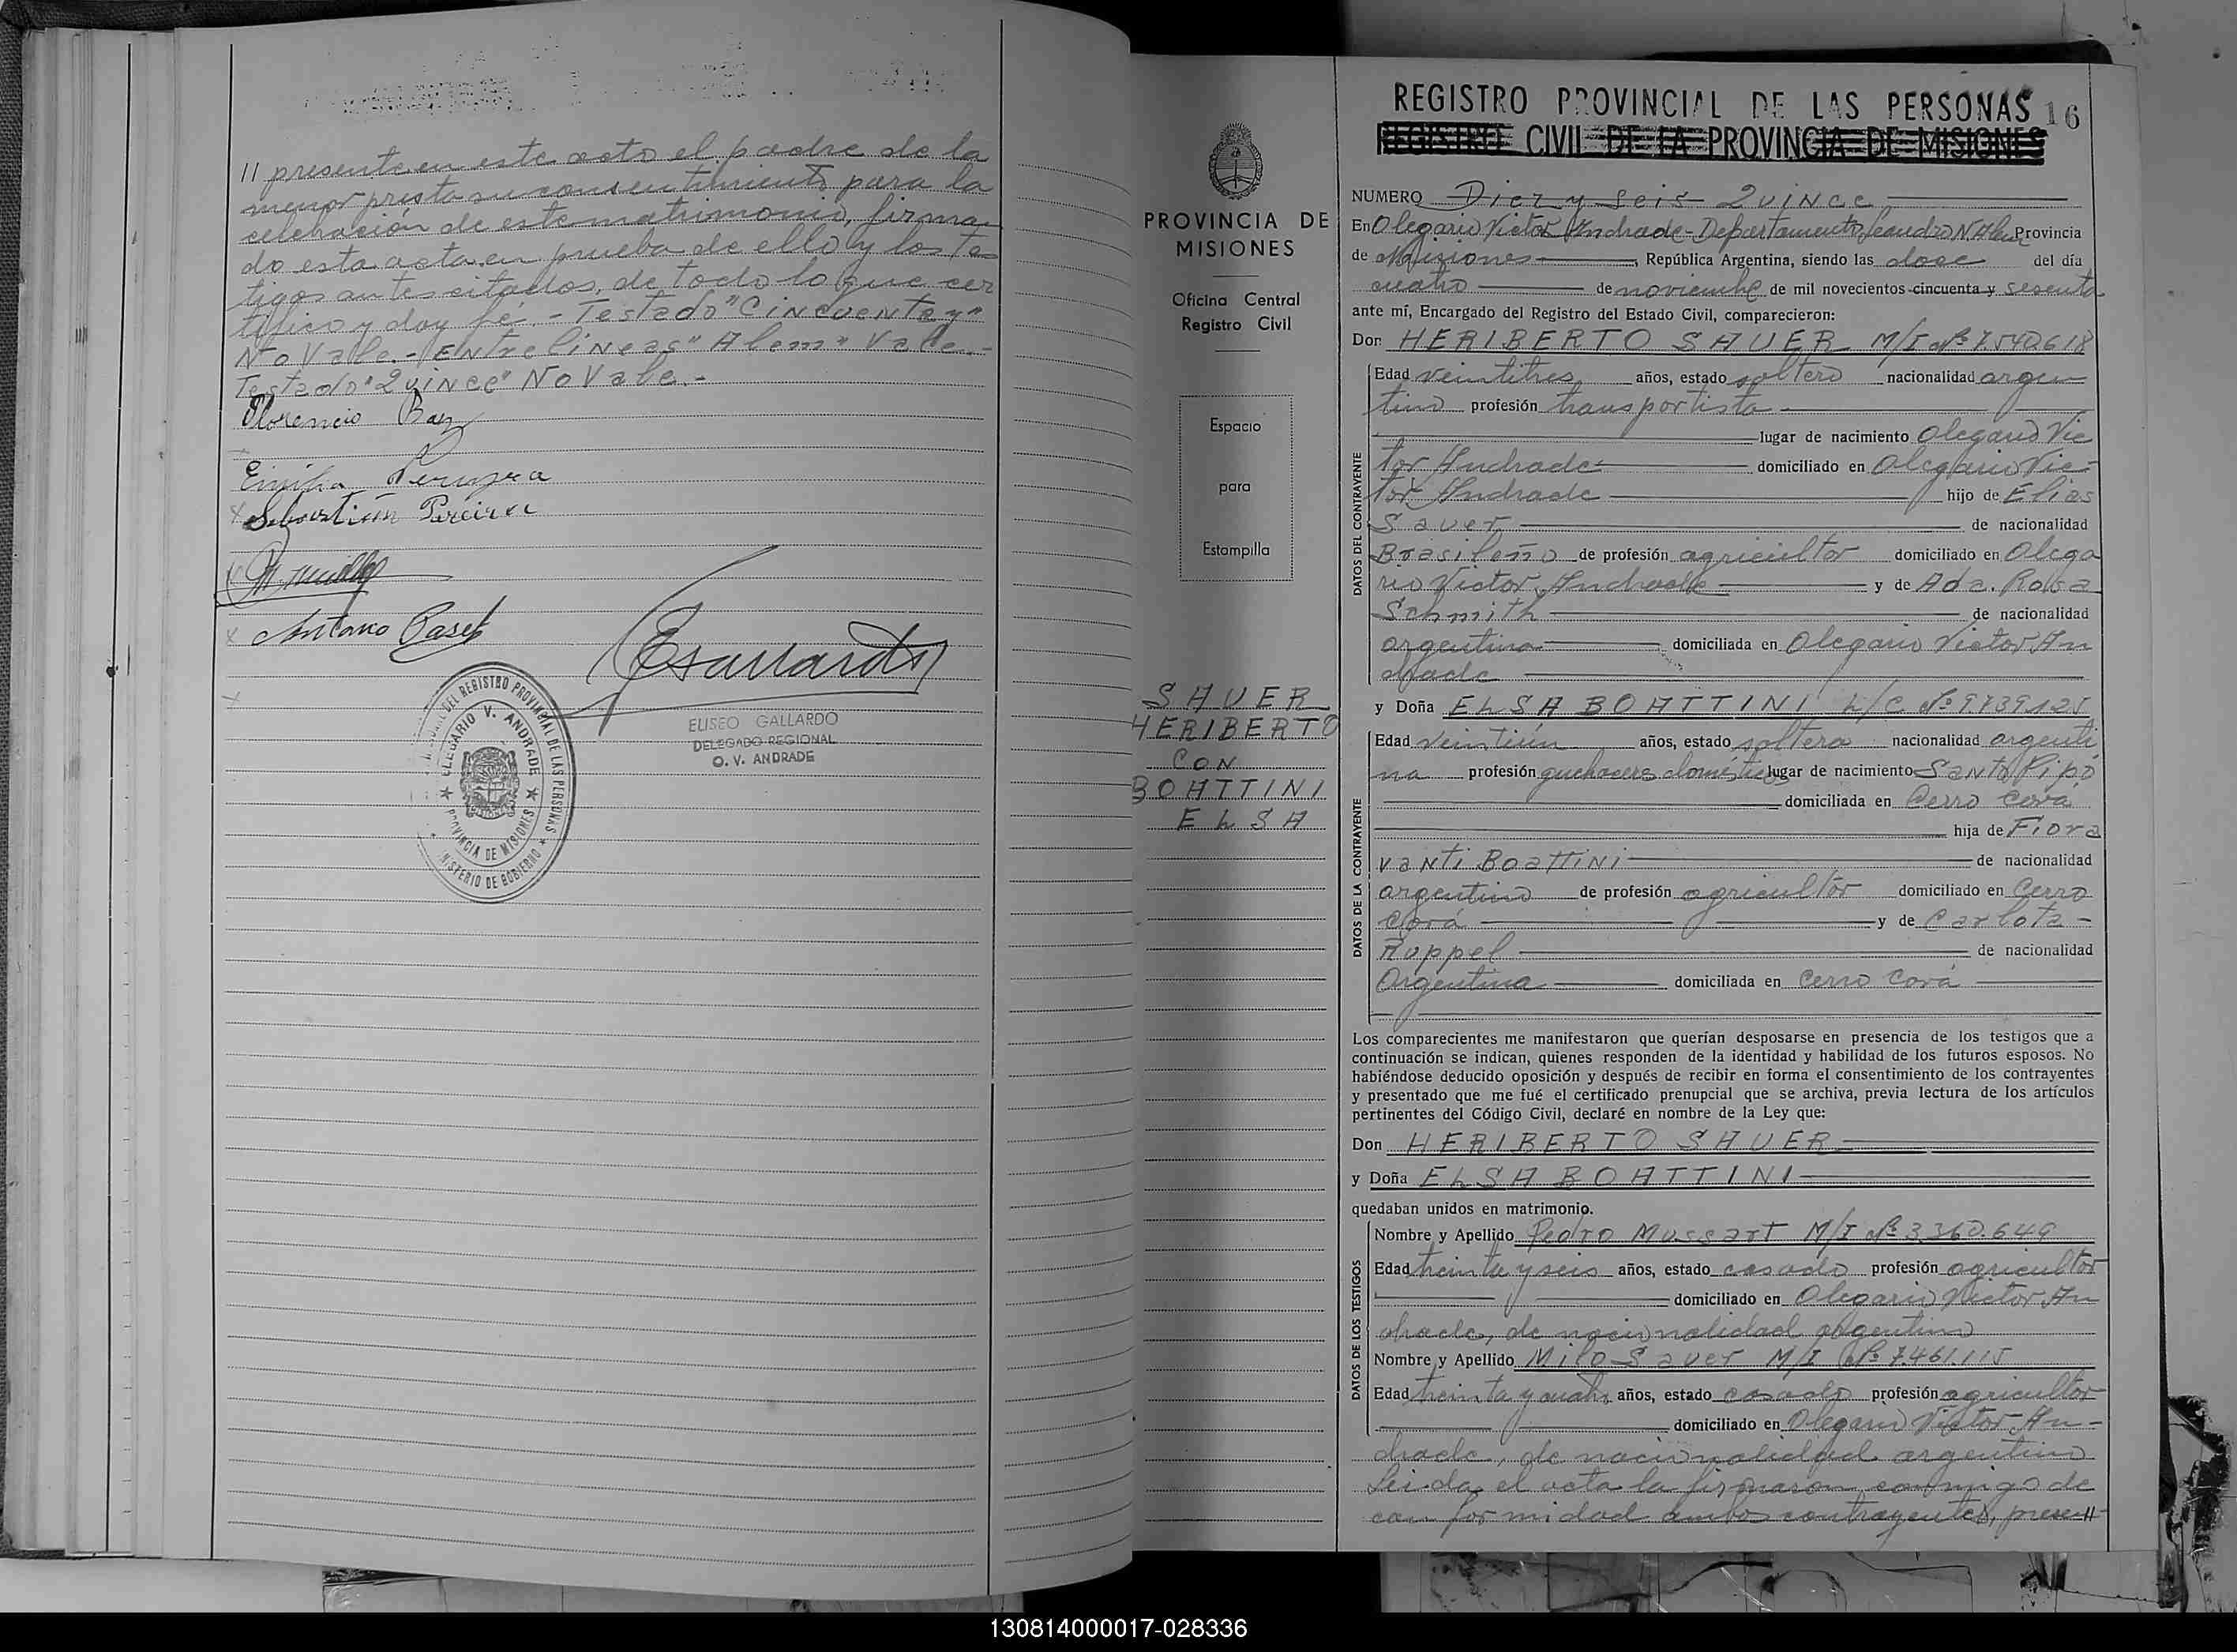 // presente en este acto el padre de la
menor presta su consentimiento para la
celebración de este matrimonio, firman
do esta acta en prueba de ello y los tes
tigos antes citados, de todo lo que cer
tifico y doy fé.- Testado "Cincuenta y"
No Vale.- Entre lineas "Alem" Vale.-
Testado "Quince" No Vale.-
Florencio
Emilia
x Sebastián Pereira
x Antonio
ELISEO GALLARDO
DELEGADO REGIONAL
O. V. ANDRADE
DEL REGISTRO PROVINCIAL DE LAS PERSONAS
OLEGARIO V. ANDRADE
PROVINCIA DE MISIONES
MINISTERIO DE GOBIERNO
PROVINCIA DE
MISIONES
Oficina Central
Registro Civil
Espacio
para
Estampilla
SAUER
HERIBERTO
CON
BOATTINI
ELSA
REGISTRO PROVINCIAL DE LAS PERSONAS 16
REGISTRO CIVIL DE LA PROVINCIA DE MISIONES
NUMERO Diez y seis Quince
En Olegario Victor Andrade - Departamento Leandro N. Alem Provincia
de Misiones, República Argentina, siendo las doce del día
cuatro de noviembre de mil novecientos cincuenta y sesenta
ante mí, Encargado del Registro del Estado Civil, comparecieron:
Don HERIBERTO SAUER M/I Nº 7.540.618
Edad veintitres años, estado soltero nacionalidad argen
tino profesión transportista
lugar de nacimiento Olegario Vic
tor Andrade domiciliado en Olegario Vic-
tor Andrade hijo de Elias
Sauer de nacionalidad
Brasileño de profesión agricultor domiciliado en Olega
rio Victor Andrade y de Ada. Rosa
Schmith de nacionalidad
argentina domiciliada en Olegario Victor An
drade
y Doña ELSA BOATTINI L/C Nº 9.739.125
Edad veintiún años, estado soltera nacionalidad argenti
na profesión quehaceres domésticos lugar de nacimiento Santo Pipó
domiciliada en Cerro Corá
hija de Fiora
vanti Boattini de nacionalidad
argentino de profesión agricultor domiciliado en Cerro
Corá y de Carlota -
Ruppel de nacionalidad
Argentina domiciliada en Cerro Corá
Los comparecientes me manifestaron que querían desposarse en presencia de los testigos que a
continuación se indican, quienes responden de la identidad y habilidad de los futuros esposos. No
habiéndose deducido oposición y después de recibir en forma el consentimiento de los contrayentes
y presentado que me fué el certificado prenupcial que se archiva, previa lectura de los artículos
pertinentes del Código Civil, declaré en nombre de la Ley que:
Don HERIBERTO SAUER
y Doña ELSA BOATTINI
quedaban unidos en matrimonio.
Nombre y Apellido Pedro Mussart M/I Nº 3.360.649
Edad treinta y seis años, estado casado profesión agricultor
domiciliado en Olegario Victor An
drade, de nacionalidad argentino
Nombre y Apellido Milo Sauer M/I Nº 7.461.115
Edad treinta y cuatro años, estado casado profesión agricultor
domiciliado en Olegario Victor An-
drade, de nacionalidad argentino
Leida el acta la firmaron conmigo de
conformidad ambos contrayentes, presen//
DATOS DEL CONTRAYENTE
DATOS DE LA CONTRAYENTE
DATOS DE LOS TESTIGOS
130814000017-028336